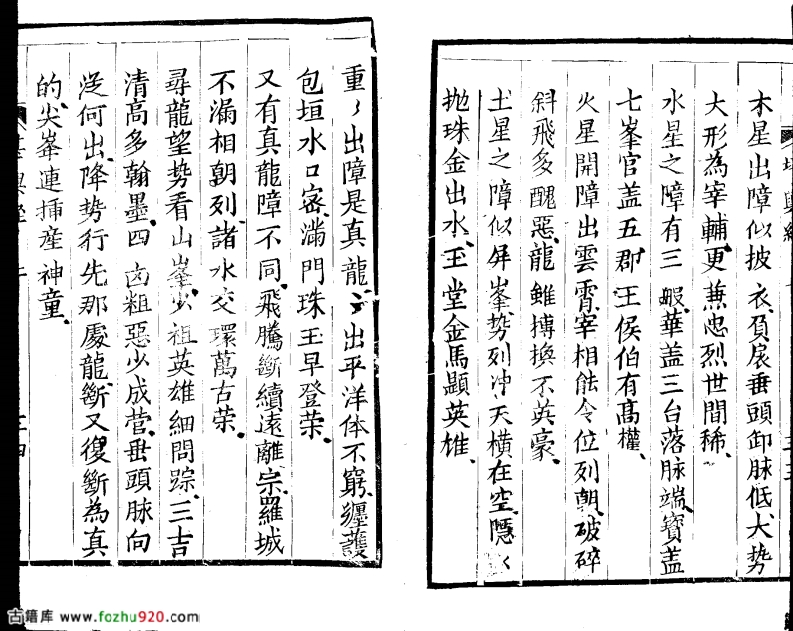 木星出障似披衣負扆垂頭卸脉低大势
大形為宰輔更兼忠烈世間稀
水星之障有三畈華盖三台落脉端寶盖
七峯官盖五郡王侯伯有高權
火星開障出雲霄宰相能令位列朝破碎
斜飛多醜惡龍雖博換不英豪
土星之障似屏峯势列冲天橫在空隱〻
抛珠金出水玉堂金馬顕英雄
重〻出障是真龍〻出平洋体不窮纒護
包垣水口宻滿門珠玉早登荣
又有真龍障不同飛騰斷續遠離宗羅城
不漏相朝列諸水交環萬古荣
尋龍望势看山峯少祖英雄細問踪三吉
清高多翰墨四凶粗惡少成营垂頭脉向
従何出降势行先那處龍斷又復斷為真
的尖峯連揷産神童
古籍库 www.fozhu920.com